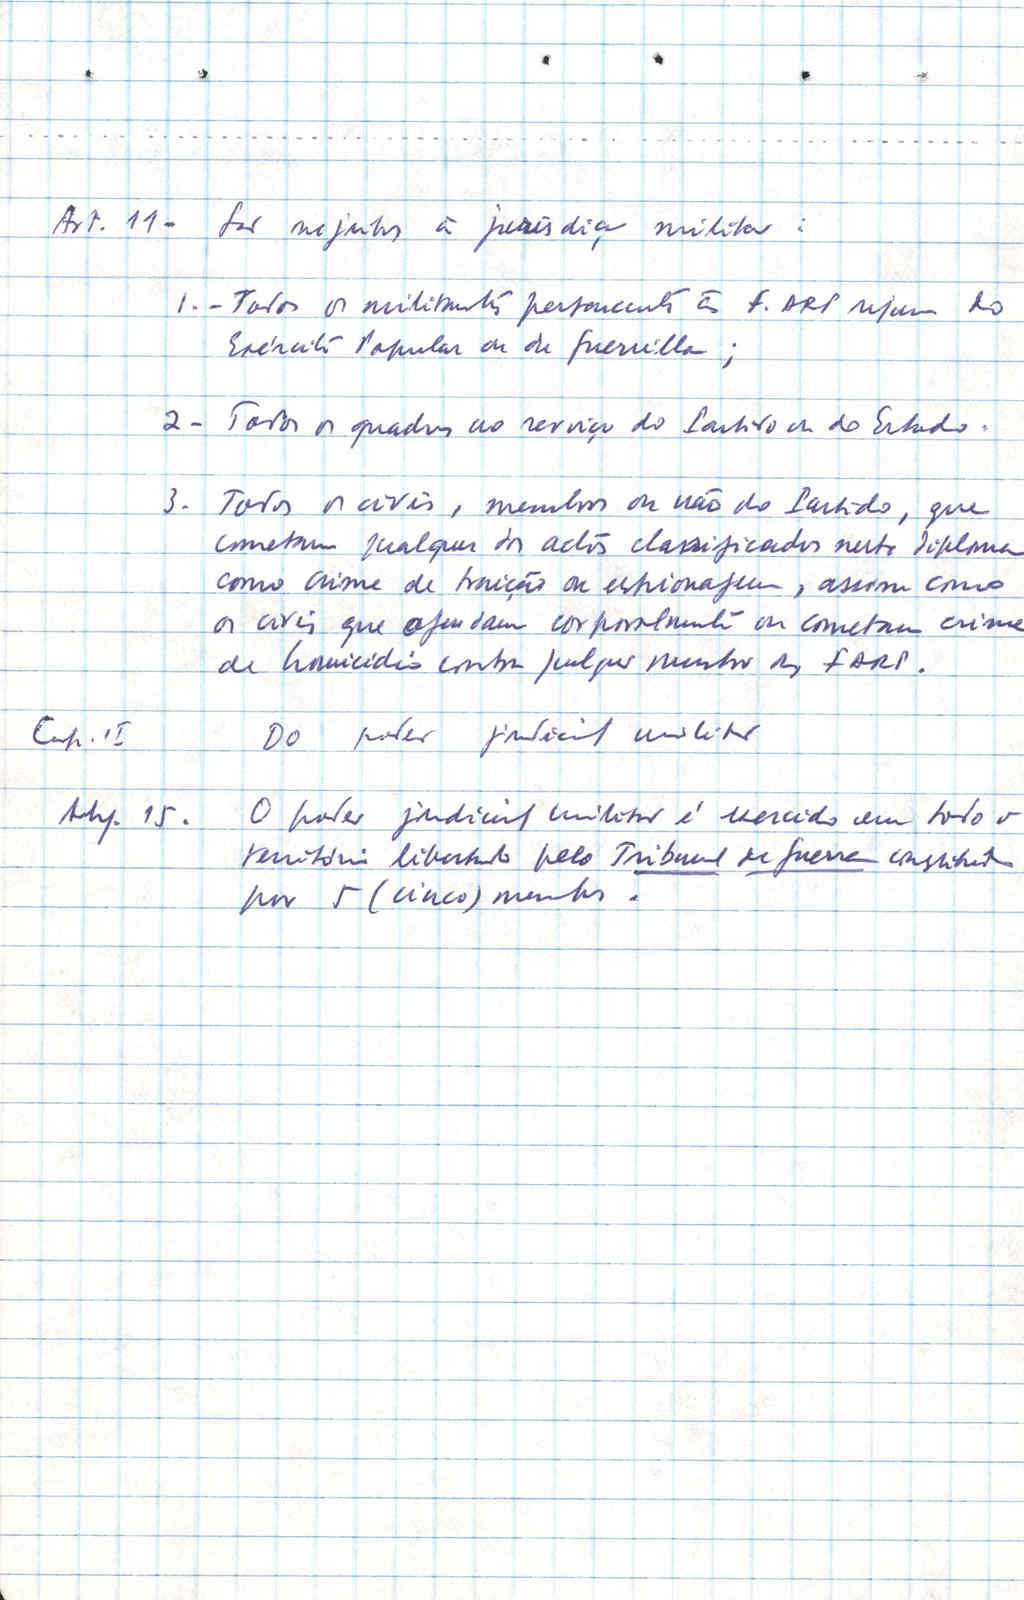 Art. 11 - São sujeitos à jurisdição militar :
1. - Todos os militantes pertencentes às F. ARP sejam do
Exército Popular ou da Guerrilha ;
2 - Todos os quadros ao serviço do Partido ou do Estado.
3. Todos os civis, membros ou não do Partido, que
cometam qualquer dos actos classificados neste Diploma
como crime de traição ou espionagem, assim como
os civis que ofendam corporalmente ou cometam crime
de homicídio contra qualquer membro das FARP.
Cap. II Do poder judicial militar
Artg. 15. O poder judicial militar é exercido em todo o
território libertado pelo Tribunal de Guerra constituído
por 5 (cinco) membros.